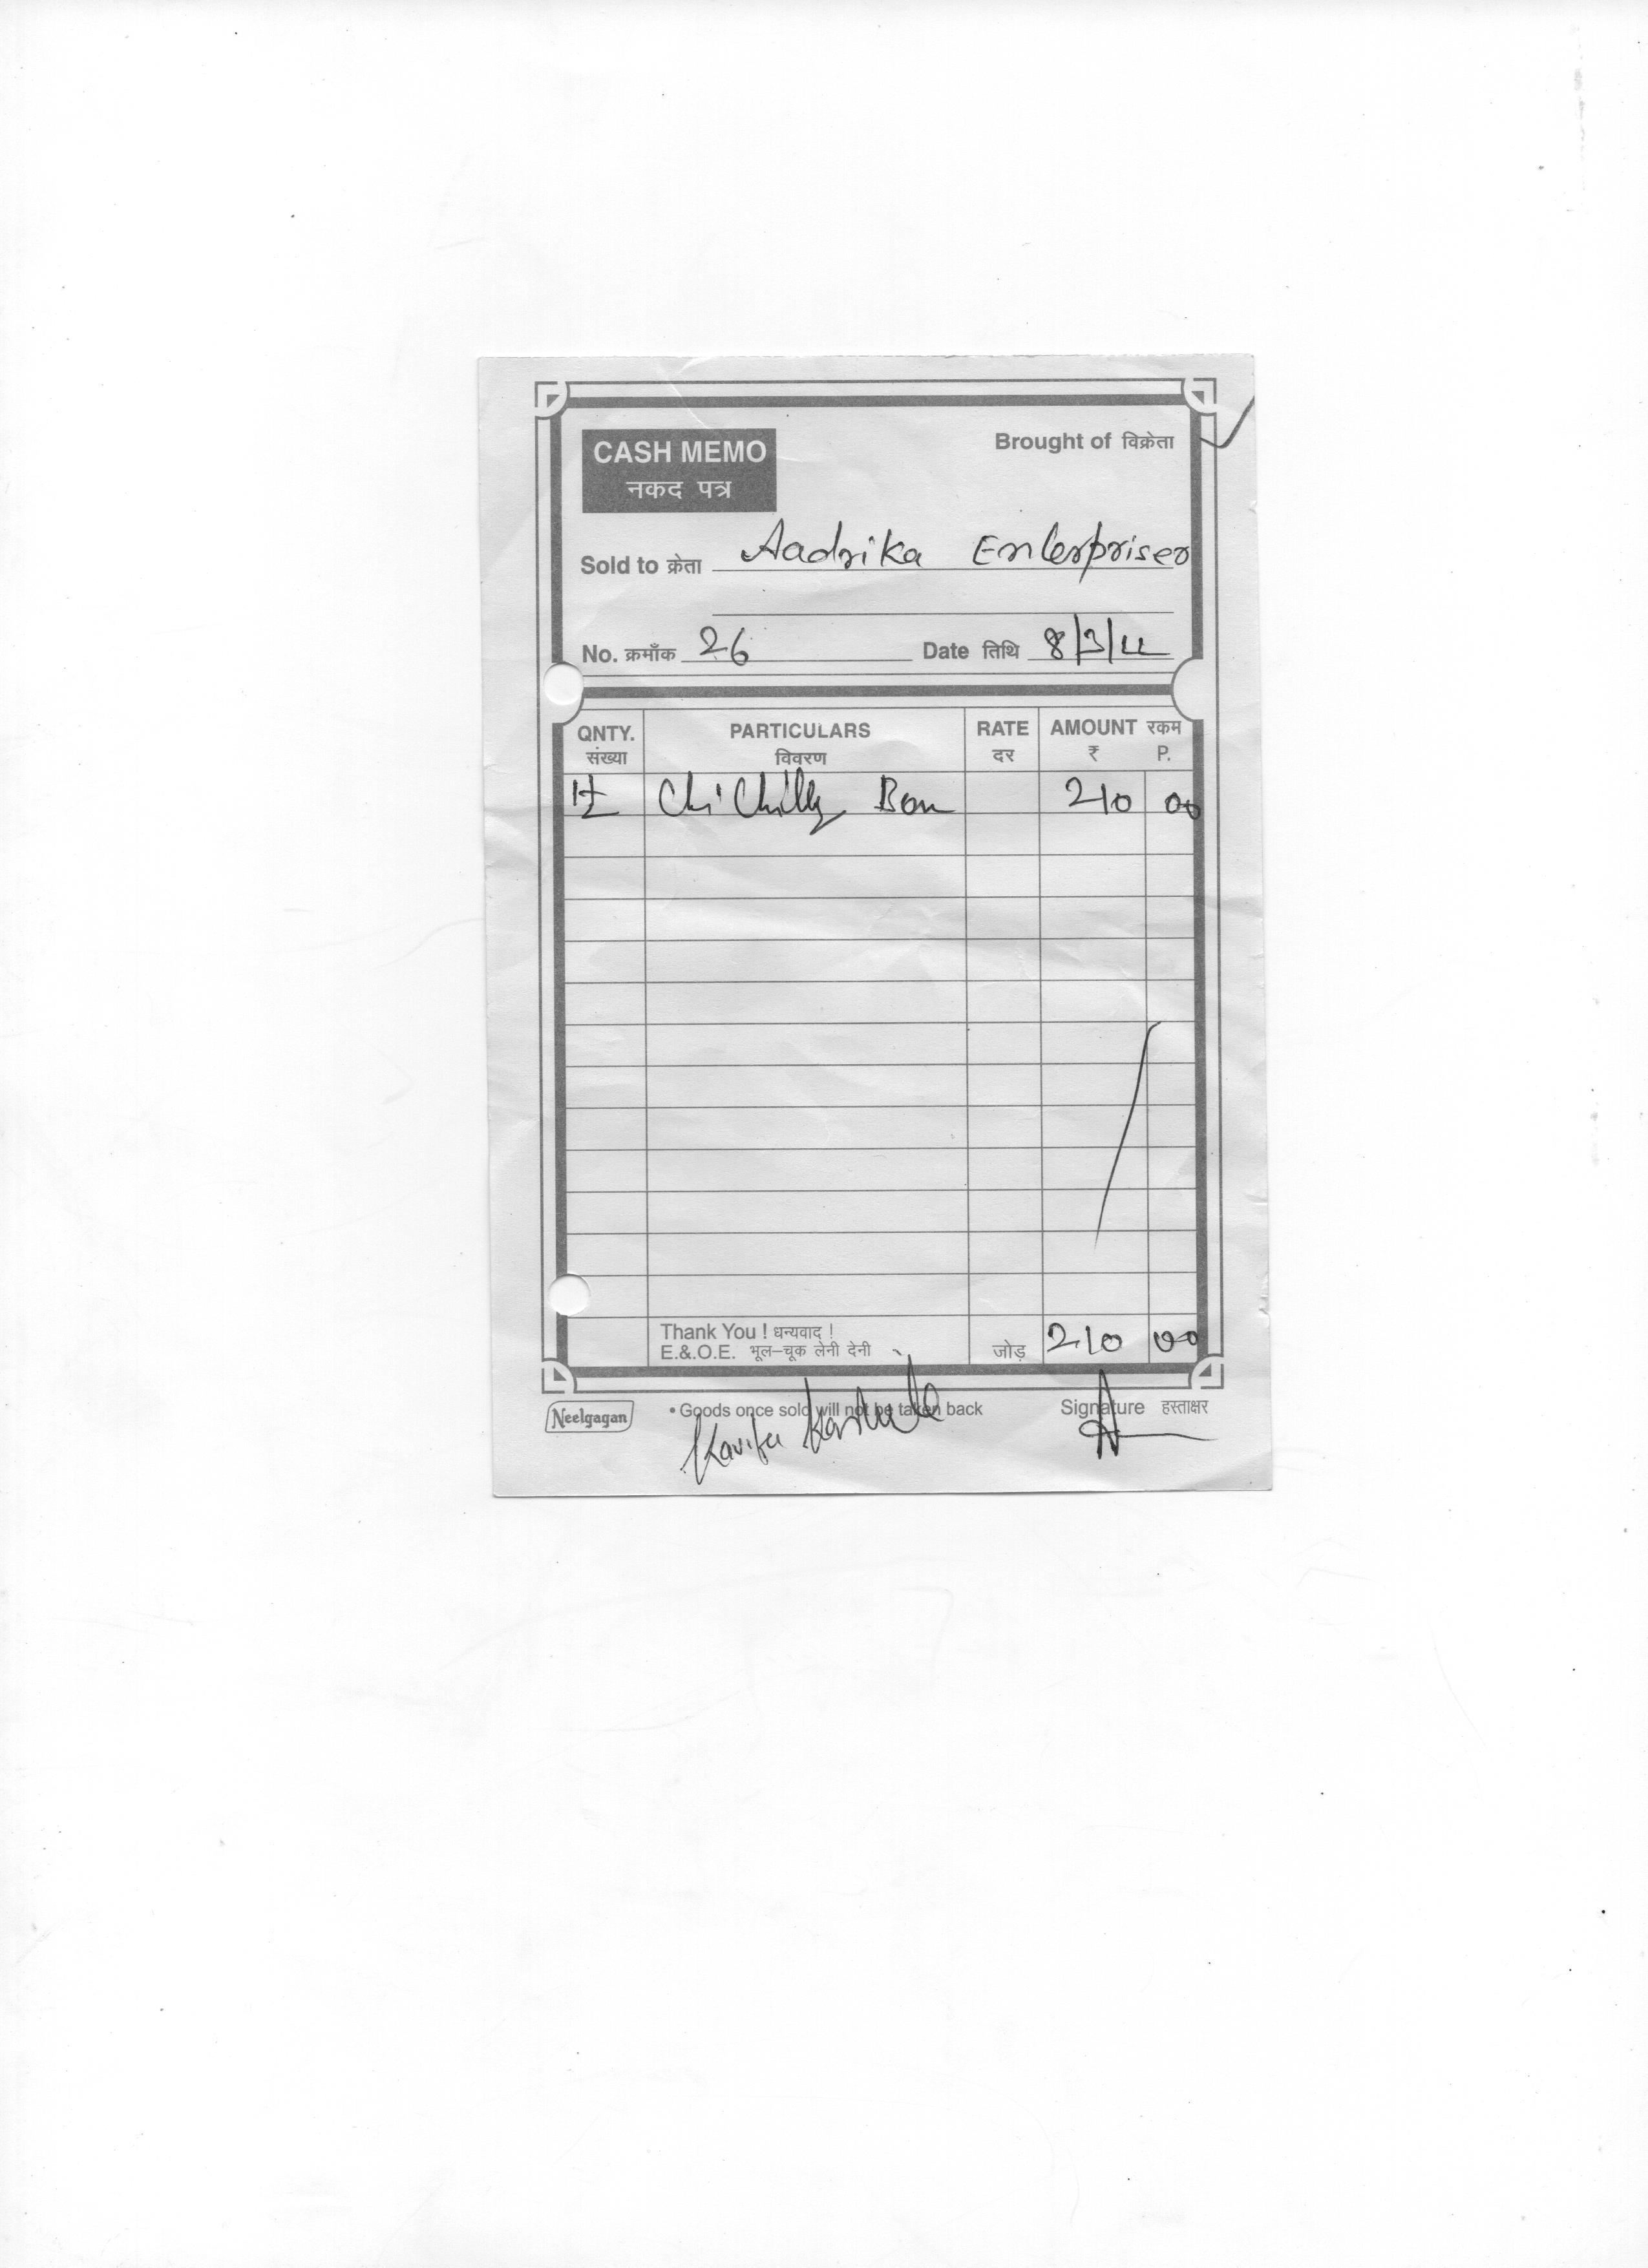 CASH MEMO
नकद पत्र
Brought of विक्रेता
Sold to क्रेता Aadrika Enterprises
No. क्रमाँक 26 Date तिथि 8/3/
QNTY. PARTICULARS RATE AMOUNT रकम
संख्या विवरण दर ₹ P.
Chi Chilly 210 00
Thank You ! धन्यवाद !
E.&.O.E. भूल-चूक लेनी देनी जोड़ 210 00
Neelgagan • Goods once sold will not be taken back Signature हस्ताक्षर